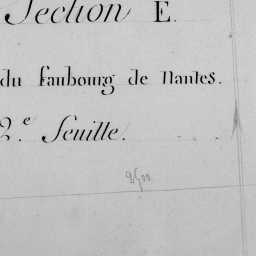 Section E.
du faubourg de Nantes.
2.e feuille.